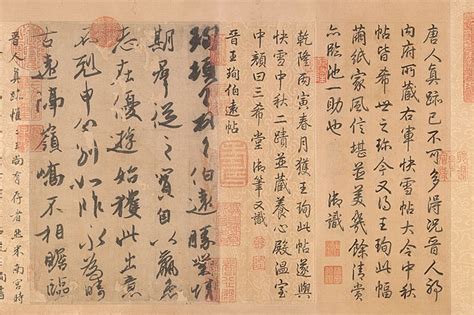 唐人真跡已不可多得況晉人耶
內府所藏右軍快雪帖大令中秋
帖皆希世之珍今又得王珣此幅
繭紙家風信堪並美幾餘清賞
亦臨池一助也 御識
乾隆丙寅春月獲王珣此帖遂與
快雪中秋二蹟並藏養心殿溫室
中顏曰三希堂 御筆又識
晉王珣伯遠帖
珣頓首頓首伯遠勝業情
期羣從之寶自以羸患
志在優遊始獲此出意
不剋申分別如昨永為疇
古遠隔嶺嶠不相瞻臨
晉人真跡惟二王尚有存者然米南宮時